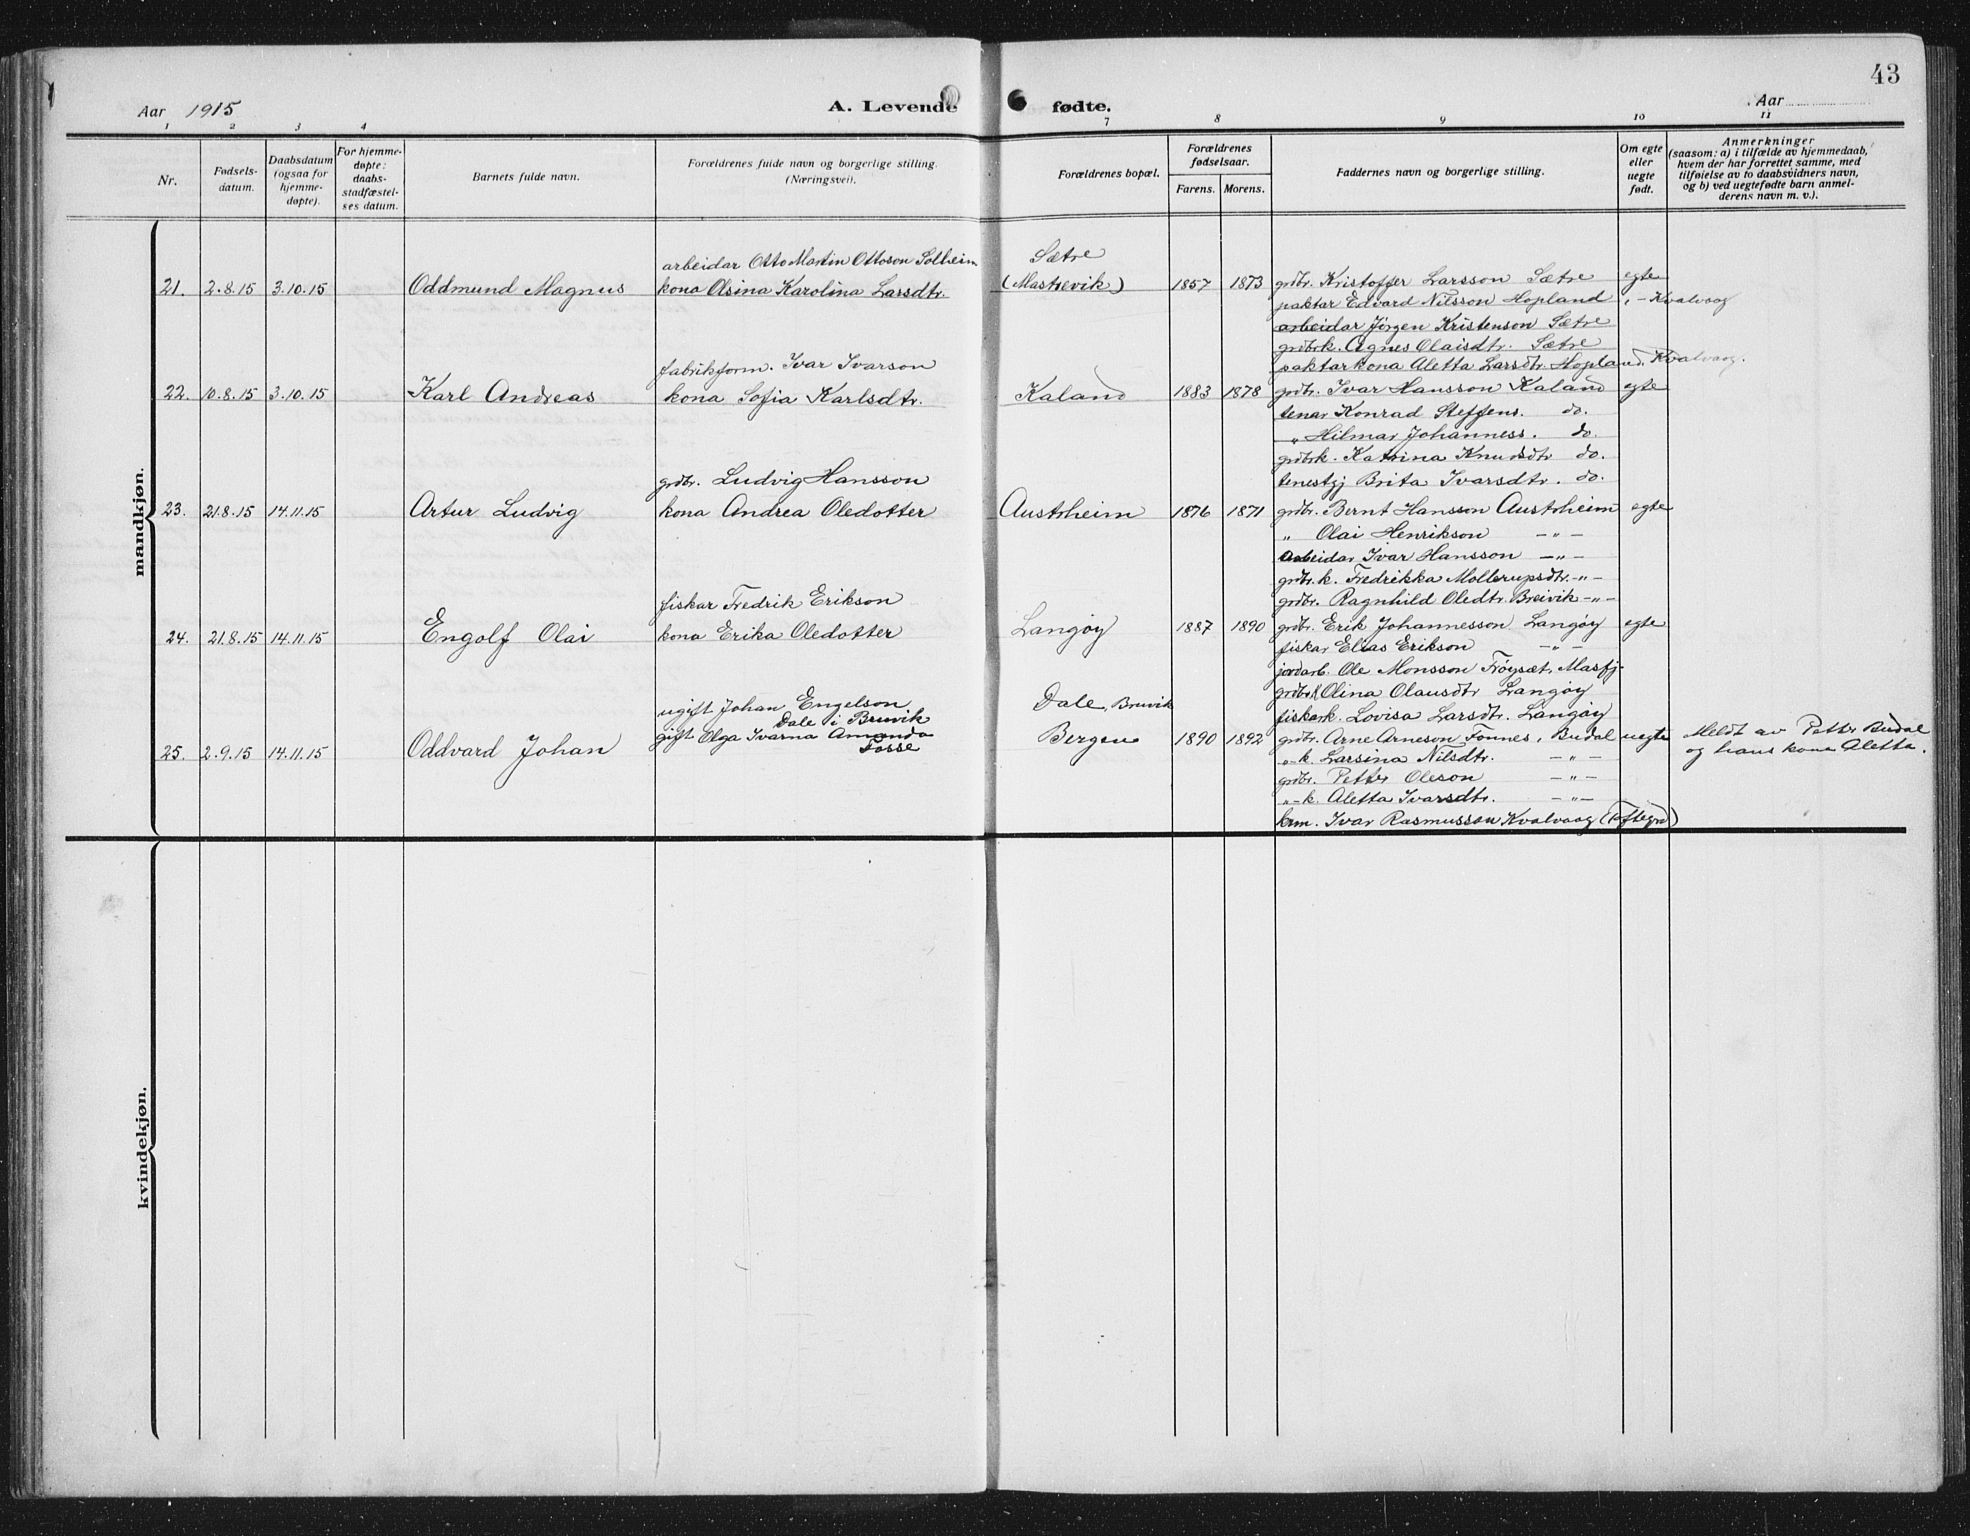 43
Aar 1915
A. Levende fødte.
Aar
1 2 3 4 7 8 9 10 11
Nr.
Fødsels-
datum.
Daabsdatum
(ogsaa for
hjemme-
døpte).
For hjemme-
døpte:
daabs-
stadfæstel-
ses datum.
Barnets fulde navn.
Forældrenes fulde navn og borgerlige stilling.
(Næringsvei).
Forældrenes bopæl.
Forældrenes
fødselsaar.
Farens. Morens.
Faddernes navn og borgerlige stilling.
Om egte
eller
uegte
født.
Anmerkninger
(saasom: a) i tilfælde av hjemmedaab,
hvem der har forrettet samme, med
tilføielse av to daabsvidners navn,
og b) ved uegtefødte barn anmel-
derens navn m. v.).
mandkjøn.
21. 2.8.15 3.10.15 Oddmund Magnus
arbeidar Otto Martin Ottoson Solheim
kona Olsina Karolina Larsdtr.
Sætre
(Mastrevik) 1857 1873
grdbr. Kristoffer Larsson Sætre egte
paktar Edvard Nilsson Hopland, - Kvalvaag
arbeidar Jørgen Kristenson Sætre
grdbrk. Agnes Olaisdtr. Sætre
paktarkona Aletta Larsdtr Hopland. Kvalvaag.
22. 10.8.15 3.10.15 Karl Andreas
fabrikform. Ivar Ivarson
kona Sofia Karlsdtr.
Kaland 1883 1878
grdbr. Ivar Hansson Kaland egte
tenar Konrad Steffens. do.
„ Hilmar Johanness. do.
grdbrk. Katrina Knutsdtr do.
tenestgj Brita Ivarsdtr. do.
23. 21.8.15 14.11.15 Artur Ludvig
grdbr. Ludvig Hansson
kona Andrea Oledotter
Austrheim 1876 1871
grdbr. Bernt Hansson Austrheim egte
„ Olai Henrikson -„-
arbeidar Ivar Hansson -„-
grdbr.k. Fredrikka Mollerupsdtr. -„-
grdbr. Ragnhild Oledtr Breivik -„-
24. 21.8.15 14.11.15 Engolf Olai
fiskar Fredrik Erikson
kona Erika Oledotter
Langøy 1887 1890
grdbr. Erik Johannesson Langøy egte
fiskar Elias Erikson -„-
jordarb. Ole Monsson Frøyset, Masfj.
grdbrk Olina Olausdtr Langøy
fiskark. Lovisa Larsdtr. Langøy
25. 2.9.15 14.11.15 Oddvard Johan
ugift Johan Engelson
Dale i Bruvik
gift Olga Ivarna Amanda
Fosse
Dale, Bruvik
Bergen 1890 1892
grdbr. Arne Arneson Fonnes, Budal uegte
„-k. Larsina Nilsdtr. -„-
grdbr. Petter Oleson -„-
„-k. Aletta Ivarsdtr. -„-
krm. Ivar Rasmusson Kvalvaag (Toftegrd)
Meldt av Petter Budal
og hans kona Aletta.
kvindekjøn.